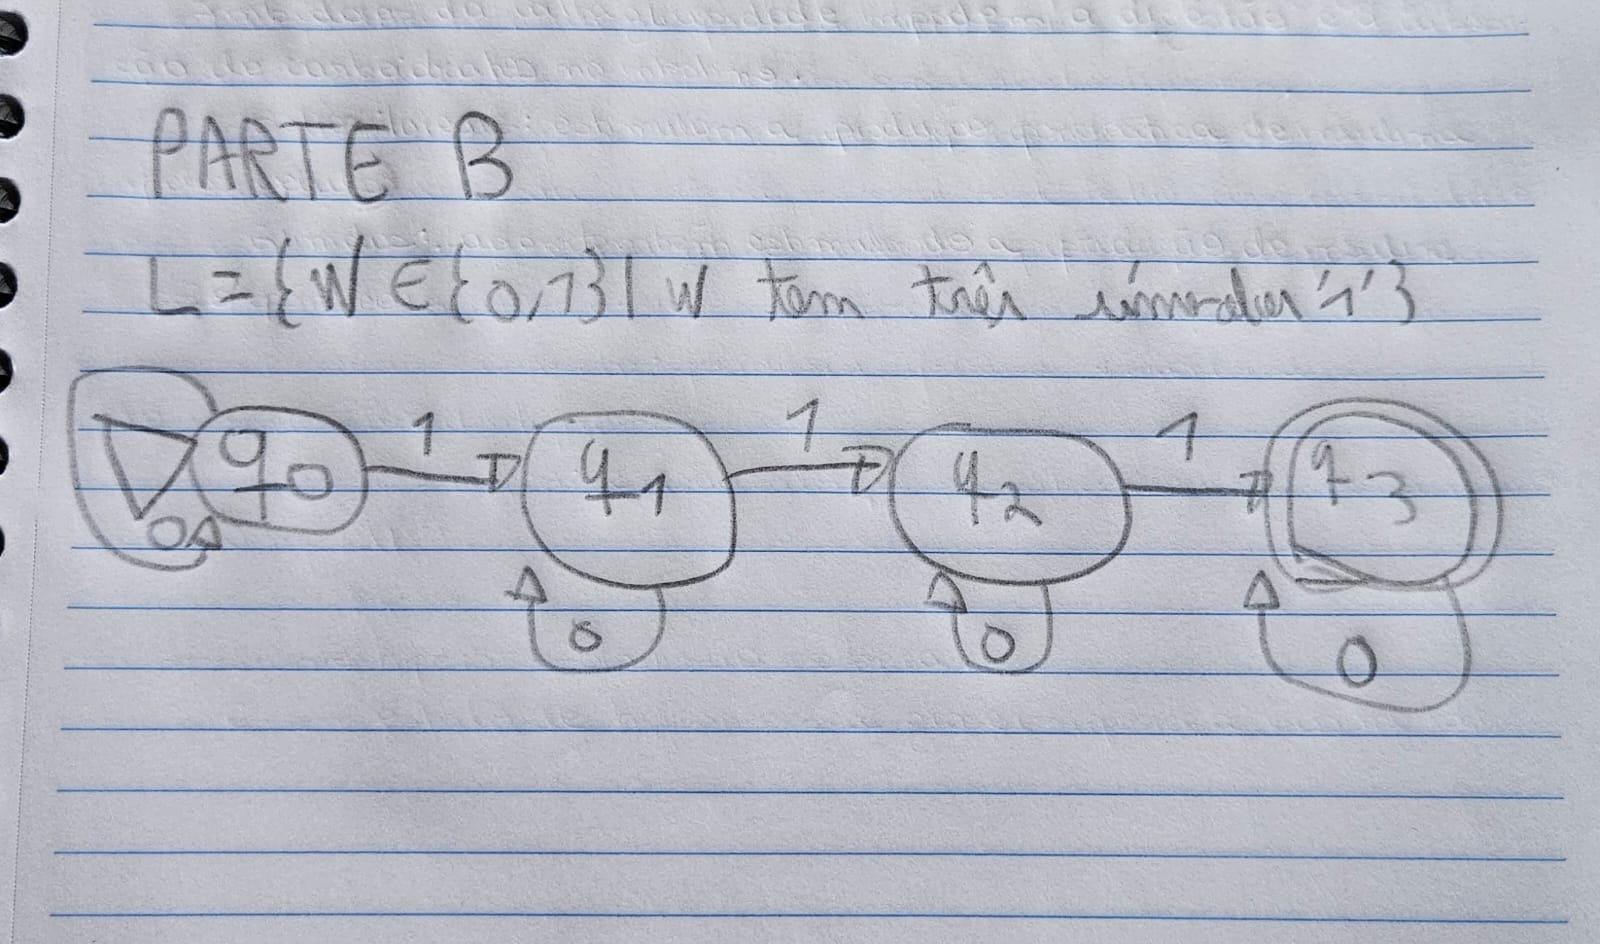 PARTE B
L = {W ∈ {0,1} | W tem três símbolos '1'}
1 1 1
q0 q1 q2 q3
0 0 0 0